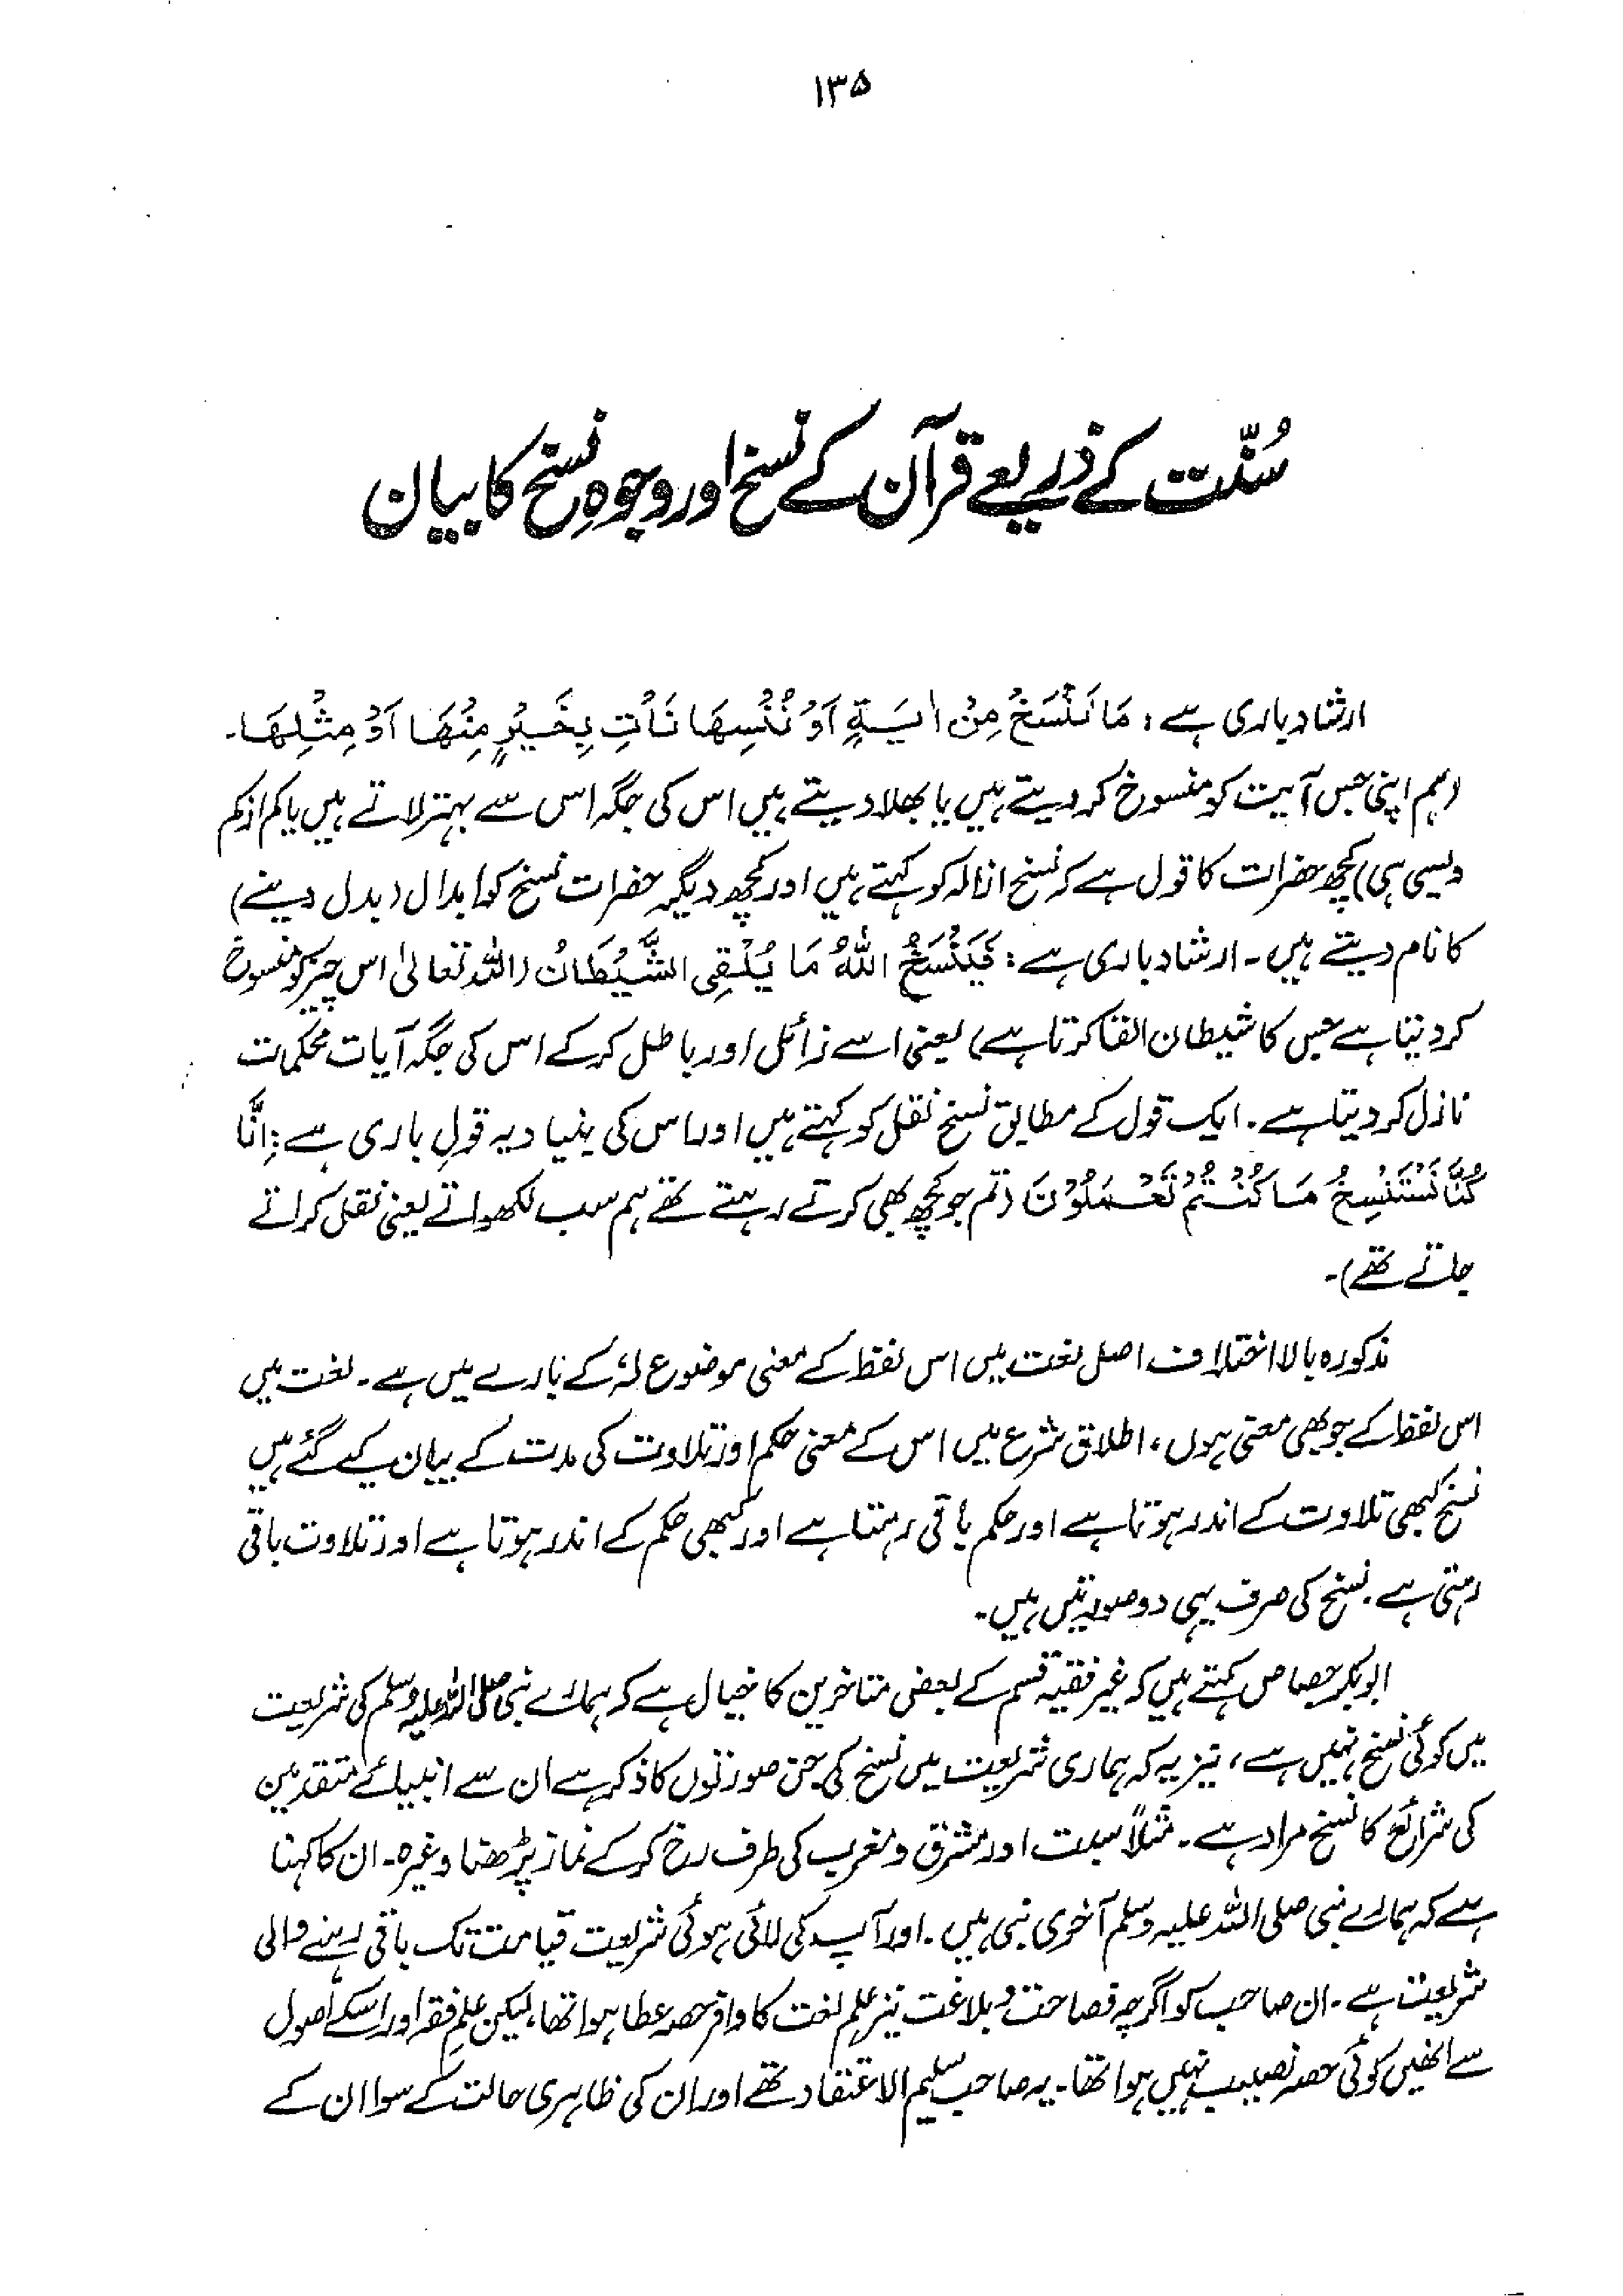 ۱۳۵
سُنّت کے ذریعے قرآن کے نسخ اور وجوہِ نسخ کا بیان
ارشاد باری ہے: مَا نَنْسَخْ مِنْ اٰیَۃٍ اَوْ نُنْسِھَا نَاْتِ بِخَیْرٍ مِّنْھَا اَوْ مِثْلِھَا۔
(ہم اپنی جس آیت کو منسوخ کر دیتے ہیں یا بھلا دیتے ہیں اس کی جگہ اس سے بہتر لاتے ہیں یا کم از کم
ویسی ہی) کچھ حضرات کا قول ہے کہ نسخ ازالہ کو کہتے ہیں اور کچھ دیگر حضرات نسخ کو ابدال (بدل دینے)
کا نام دیتے ہیں۔ ارشاد باری ہے: فَیَنْسَخُ اللّٰہُ مَا یُلْقِی الشَّیْطَانُ (اللہ تعالیٰ اس چیز کو منسوخ
کر دیتا ہے جس کا شیطان القا کرتا ہے) یعنی اسے زائل اور باطل کر کے اس کی جگہ آیات محکمات
نازل کر دیتا ہے۔ ایک قول کے مطابق نسخ نقل کو کہتے ہیں اور اس کی بنیاد یہ قولِ باری ہے: اِنَّا
کُنَّا نَسْتَنْسِخُ مَا کُنْتُمْ تَعْمَلُوْنَ (تم جو کچھ بھی کرتے رہتے تھے ہم سب لکھواتے یعنی نقل کراتے
جاتے تھے)۔
مذکورہ بالا اختلاف اصل لغت میں اس لفظ کے معنی موضوع لہٗ کے بارے میں ہے۔ لغت میں
اس لفظ کے جو بھی معنی ہوں، اطلاق شرع میں اس کے معنی حکم اور تلاوت کی مدت کے بیان کیے گئے ہیں
نسخ کبھی تلاوت کے اندر ہوتا ہے اور حکم باقی رہتا ہے اور کبھی حکم کے اندر ہوتا ہے اور تلاوت باقی
رہتی ہے۔ نسخ کی صرف یہی دو صورتیں ہیں۔
ابوبکر جصاص کہتے ہیں کہ غیر فقیہ قسم کے بعض متاخرین کا خیال ہے کہ ہمارے نبی صلی اللہ علیہ وسلم کی شریعت
میں کوئی نسخ نہیں ہے، نیز یہ کہ ہماری شریعت میں نسخ کی جن صورتوں کا ذکر ہے ان سے انبیائے متقدمین
کی شرائع کا نسخ مراد ہے۔ مثلاً سبت اور مشرق و مغرب کی طرف رخ کر کے نماز پڑھنا وغیرہ۔ ان کا کہنا
ہے کہ ہمارے نبی صلی اللہ علیہ وسلم آخری نبی ہیں۔ اور آپ کی لائی ہوئی شریعت قیامت تک باقی رہنے والی
شریعت ہے۔ ان صاحب کو اگرچہ فصاحت و بلاغت نیز علم لغت کا وافر حصہ عطا ہوا تھا، لیکن علمِ فقہ اور اسکے اصول
سے انھیں کوئی حصہ نصیب نہیں ہوا تھا۔ یہ صاحب سلیم الاعتقاد تھے اور ان کی ظاہری حالت کے سوا ان کے